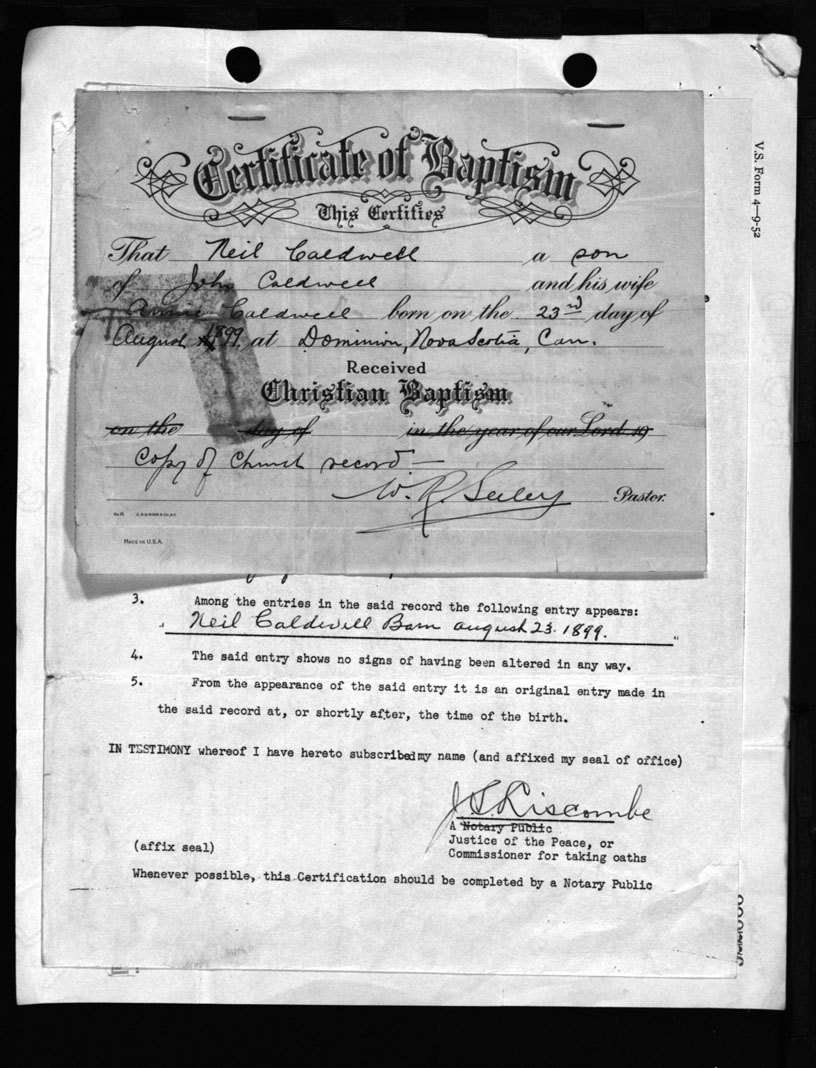 V.S. Form 4—9-52
Certificate of Baptism
This Certifies
That Neil Caldwell a son
of John Caldwell and his wife
Annie Caldwell born on the 23rd day of
August 1899, at Dominion, Nova Scotia, Can.
Received
Christian Baptism
on the day of in the year of our Lord 19
Copy of Church record —
W. R. Seeley Pastor.
MADE IN U.S.A.
3. Among the entries in the said record the following entry appears:
" Neil Caldwell Born August 23. 1899. "
4. The said entry shows no signs of having been altered in any way.
5. From the appearance of the said entry it is an original entry made in
the said record at, or shortly after, the time of the birth.
IN TESTIMONY whereof I have hereto subscribed my name (and affixed my seal of office)
J. S. Liscombe
A Notary Public
(affix seal) Justice of the Peace, or
Commissioner for taking oaths
Whenever possible, this Certification should be completed by a Notary Public